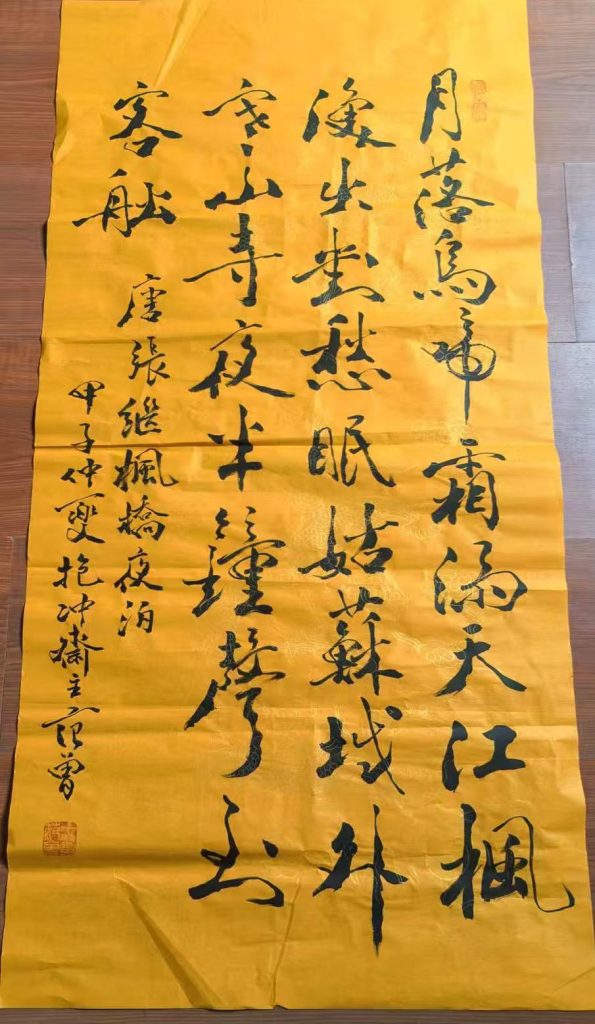 月落烏啼霜滿天江楓
漁火對愁眠姑蘇城外
寒山寺夜半鐘聲到
客船 唐張繼楓橋夜泊
甲子仲夏抱冲齋主范曾